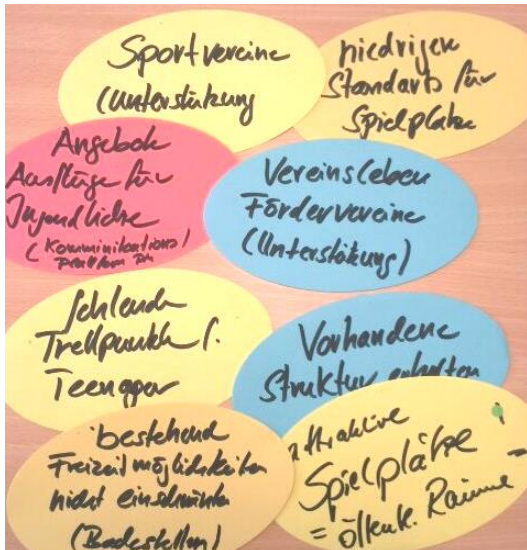 Sportvereine
(Unterstützung
niedrigen
Standarts für
Spielplätze
Angebote
Ausflüge für
Jugendliche
(Kommunikations)
Plattform
Vereinsleben
Fördervereine
(Unterstützung)
fehlende
Treffpunkte f.
Teenager
Vorhandene
Struktur erhalten
bestehend
Freizeitmöglichkeiten
nicht einschränken
(Badestellen)
attraktive
Spielplätze
= öffentl. Räume